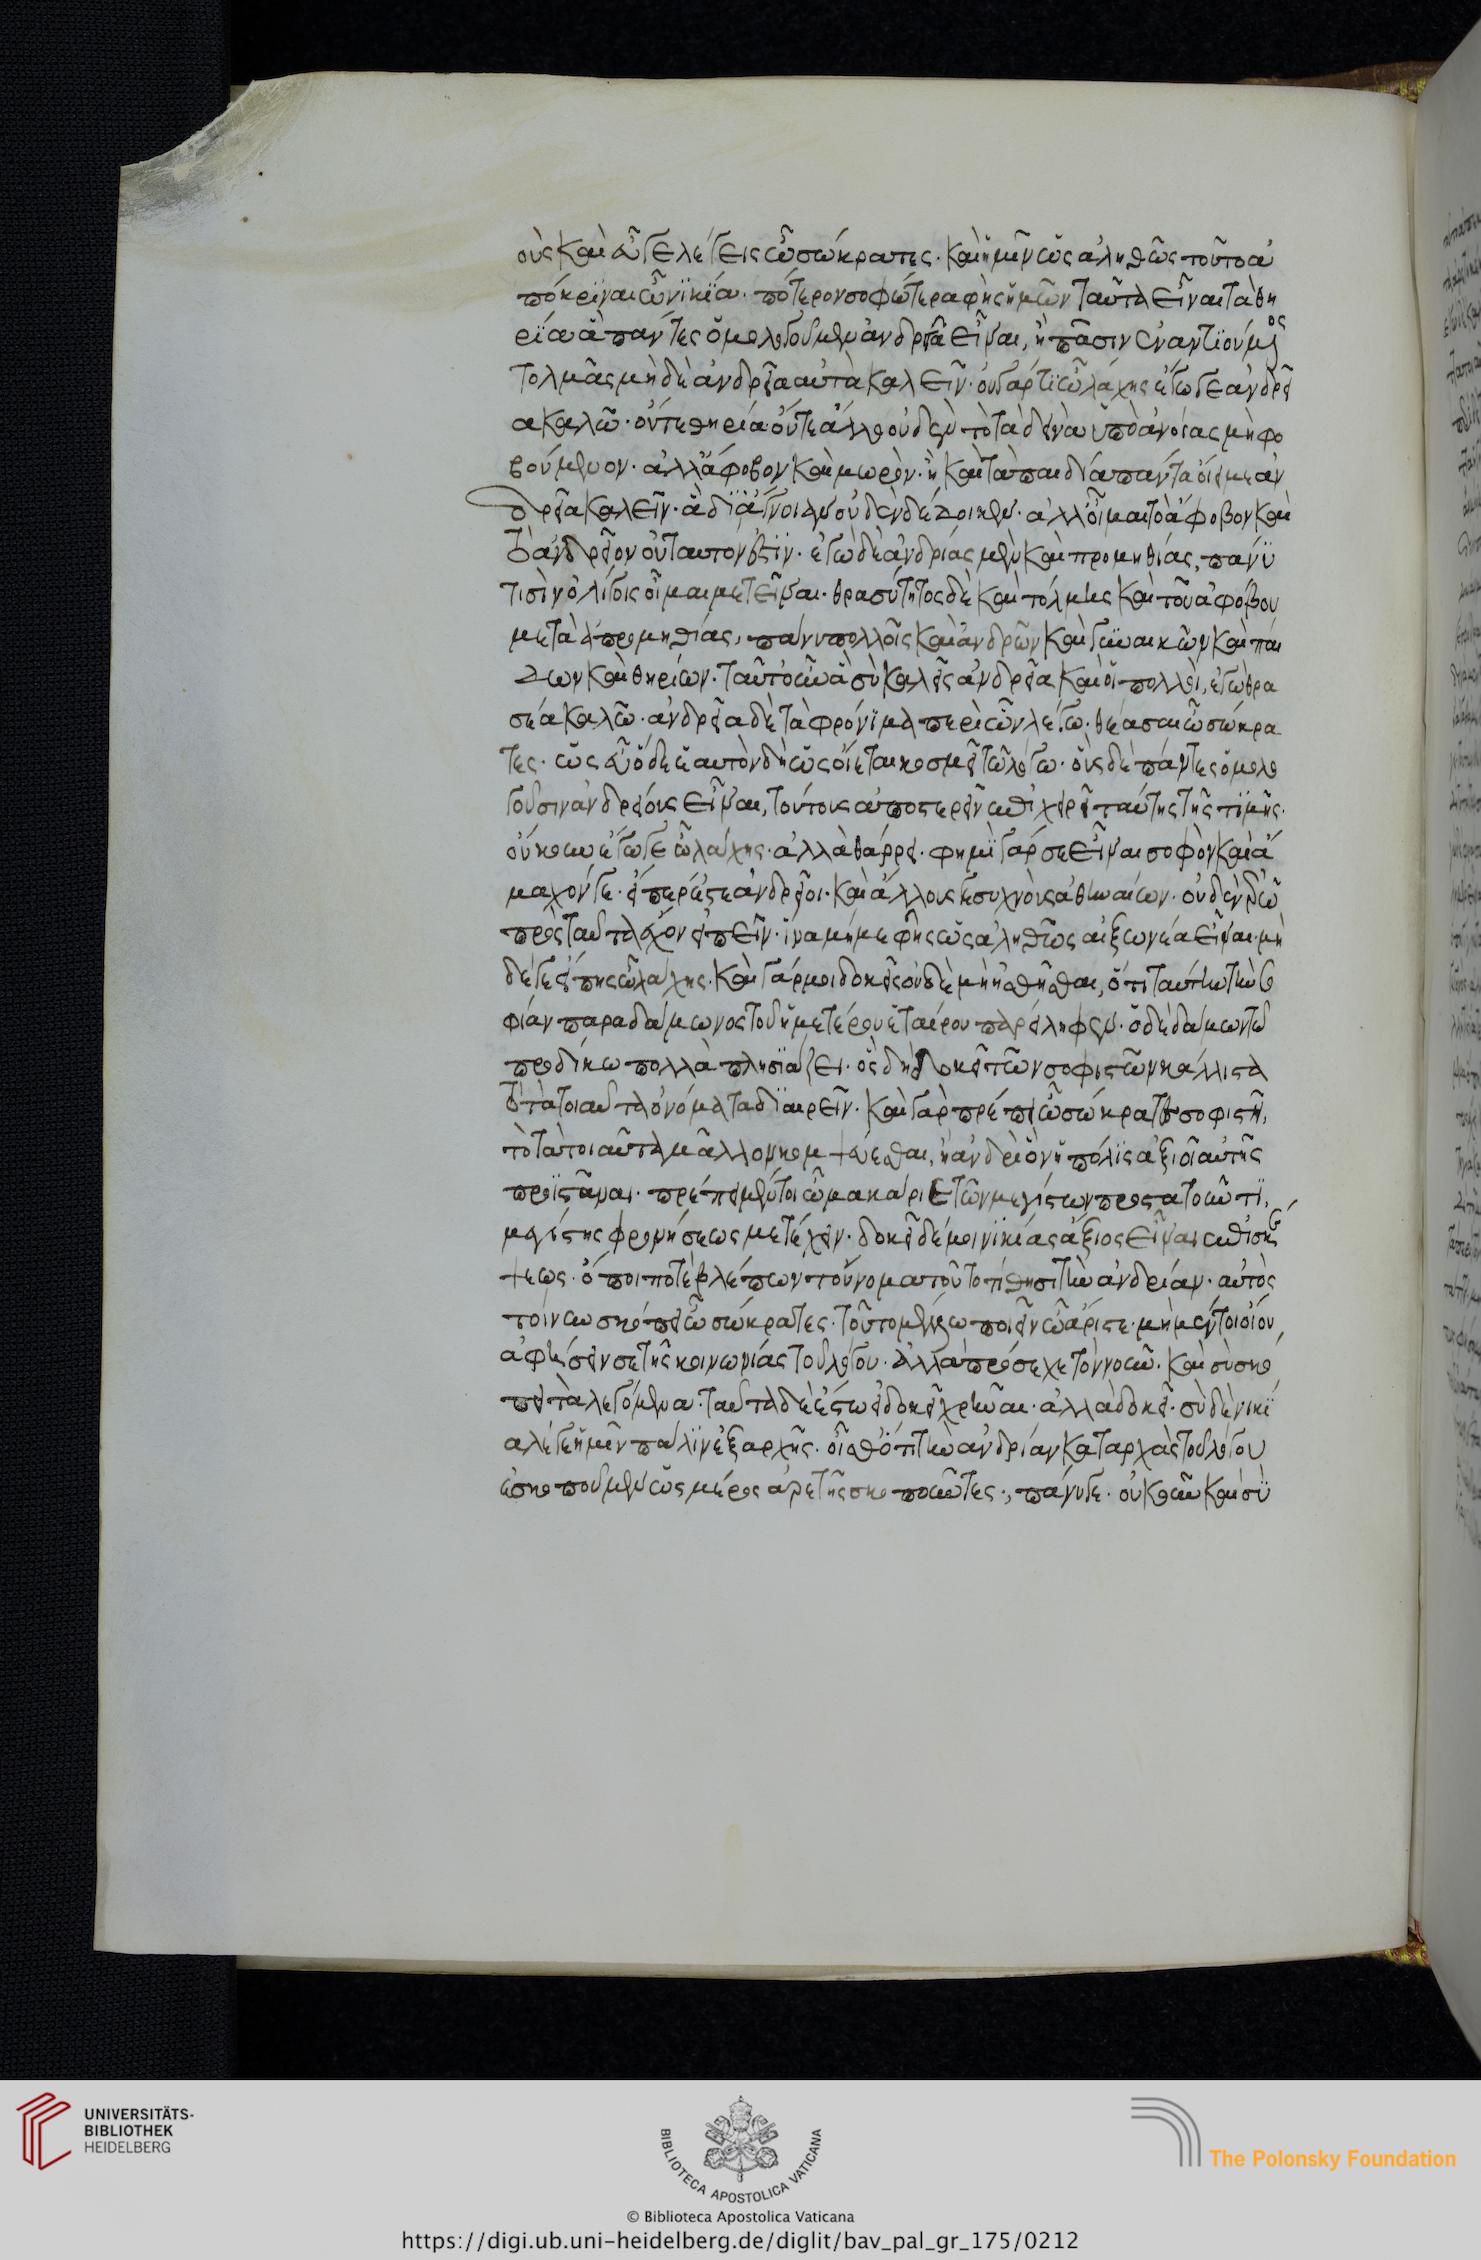 οὺς καὶ εὖ γε λέγεις ὦ σώκρατες. καὶ ἡμῖν ὡς ἀληθῶς τοῦτο ἀ
πόκριναι ὦ νϊκία. πότερον σοφώτερα φὴς ἡμῶν ταῦτα εἶναι τὰ θη
ρία ἃ πάντες ὁμολογοῦμεν ἀνδρεῖα εἶναι, ἢ πᾶσιν ἐναντϊούμενος
τολμᾶς μηδὲ ἀνδρεῖα αὐτὰ καλεῖν. οὐ γάρ τϊ ὦ λάχης ἔγωγε ἀνδρεῖ
α καλῶ. οὔτε θηρία οὔτε ἄλλο οὐδὲν τὸ τὰ δεινὰ ὑπὸ ἀνοίας μὴ φο
βούμενον. ἀλλ' ἄφοβον καὶ μωρὸν. ἢ καὶ τὰ παιδία πάντα οἴει με ἀν
δρεῖα καλεῖν. ἃ δϊ' ἄγνοιαν οὐδὲν δέδοικεν. ἀλλ' οἶμαι τὸ ἄφοβον καὶ
τὸ ἀνδρεῖον οὐ ταυτόν ἐστϊν. ἐγὼ δὲ ἀνδρίας μὲν καὶ προμηθίας, πάνϋ
τισὶν ὀλίγοις οἶμαι μετεῖναι. θρασύτητος δὲ καὶ τόλμης καὶ τοῦ ἀφόβου
μετὰ ἀπρομηθίας, πάνυ πολλοῖς καὶ ἀνδρῶν καὶ γυναικῶν καὶ παί
δων καὶ θηρίων. ταῦτ' οὖν ἃ σὺ καλεῖς ἀνδρεῖα καὶ οἱ πολλοὶ, ἐγὼ θρα
σέα καλῶ. ἀνδρεῖα δὲ τὰ φρόνϊμα περὶ ὧν λέγω. θέασαι ὦ σώκρα
τες. ὡς εὖ ὅδε ἑαυτὸν δὴ ὡς οἴεται κοσμεῖ τῶ λόγω. οὓς δὲ πάντες ὁμολο
γοῦσιν ἀνδρείους εἶναι, τούτους ἀποστερεῖν ἐπιχειρεῖ ταύτης τῆς τϊμῆς.
οὔκουν ἔγωγε ὦ λάχης. ἀλλὰ θάρρει. φημὶ γάρ σε εἶναι σοφὸν καὶ ἀ
μαχόν γε. εἴπερ ἐστε ἀνδρεῖοι. καὶ ἄλλους γε συχνοὺς ἀθηναίων. οὐδὲν ἐρῶ
πρὸς ταῦτα ἔχων εἰπεῖν. ἵνα μή με φῆς ὡς ἀληθῶς αἰξωνέα εἶναι. μὴ
δέ γε εἴπης ὦ λάχης. καὶ γάρ μοι δοκεῖς οὐδὲ μὴ ἠσθῆσθαι, ὅτι ταύτην τὴν σο
φίαν παρὰ δάμωνος τοῦ ἡμετέρου ἑταίρου παρείληφεν. ὁ δὲ δάμων τῶ
προδίκω πολλὰ πλησϊάζει. ὃς δὴ δοκεῖ τῶν σοφιστῶν κάλλιστα
τὰ τοιαῦτα ὀνόματα δϊαιρεῖν. καὶ γὰρ πρέπει ὦ σώκρατες σοφιστῆ,
τὸ τὰ τοιαῦτα μᾶλλον κομψεύεσθαι, ἢ ἀνδρὶ ὃν ἡ πόλϊς ἀξιοῖ αὑτῆς
προϊστᾶναι. πρέπει μέντοι ὦ μακάριε τῶν μεγίστων προστατοῦντϊ,
μεγίστης φρονήσεως μετέχειν. δοκεῖ δέ μοι νϊκίας ἄξιος εἶναι ἐπισκέ
ψεως. ὅποι ποτὲ βλέπων τοὔνομα τοῦτο τίθησι τὴν ἀνδρίαν. αὐτὸς
τοίνυν σκόπει ὦ σώκρατες. τοῦτο μέλλω ποιεῖν ὦ ἄριστε. μὴ μέντοι οἴου
ἀφήσειν σε τῆς κοινωνίας τοῦ λόγου. ἀλλὰ πρόσεχε τὸν νοῦν. καὶ συσκό
πει τὰ λεγόμενα. ταῦτα δὲ ἔστω εἰ δοκεῖ χρῆναι. ἀλλὰ δοκεῖ. σὺ δὲ νικί
α λέγε ἡμῖν πάλϊν ἐξ ἀρχῆς. οἶσθ' ὅτι τὴν ἀνδρίαν κατ' αρχὰς τοῦ λόγου
ἐσκοποῦμεν ὡς μέρος ἀρετῆς σκοποῦντες., πάνυ γε. οὐκοῦν καὶ σὺ
UNIVERSITÄTS-
BIBLIOTHEK
HEIDELBERG
BIBLIOTECA APOSTOLICA VATICANA
The Polonsky Foundation
© Biblioteca Apostolica Vaticana
https://digi.ub.uni-heidelberg.de/diglit/bav_pal_gr_175/0212